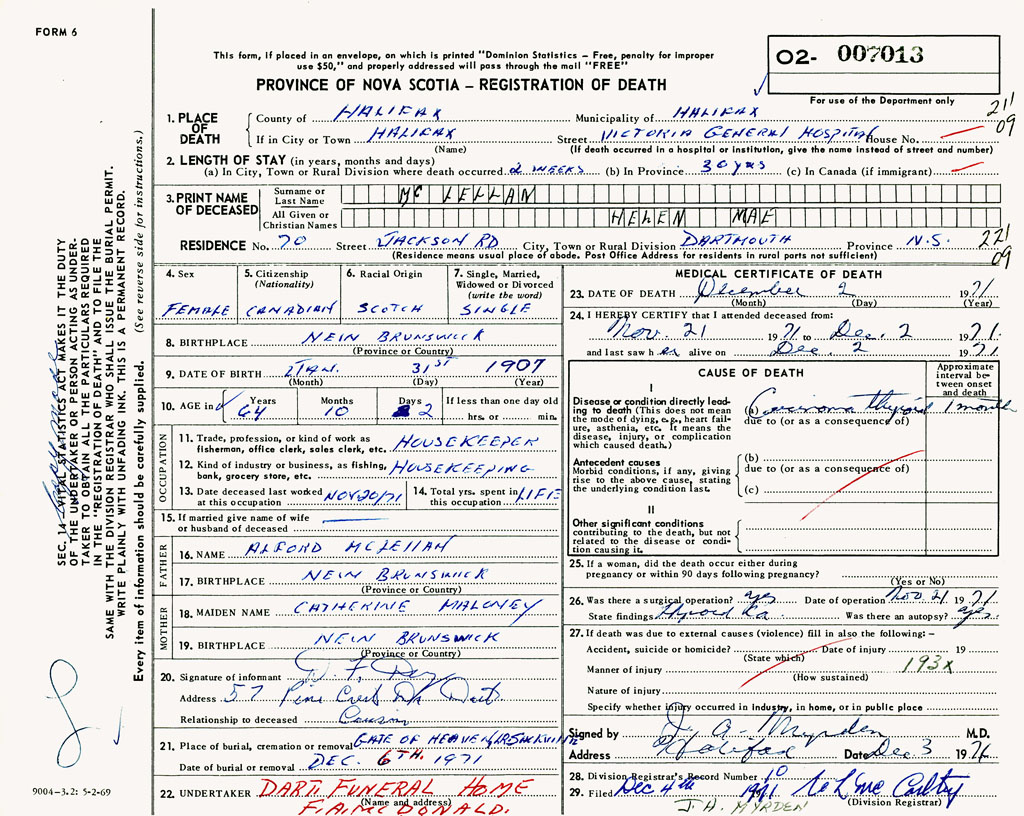 FORM 6
This form, if placed in an envelope, on which is printed "Dominion Statistics – Free, penalty for improper
use $50," and properly addressed will pass through the mail "FREE"
O2- 007013
PROVINCE OF NOVA SCOTIA – REGISTRATION OF DEATH
For use of the Department only
211
09
1. PLACE OF DEATH
County of HALIFAX Municipality of HALIFAX
If in City or Town HALIFAX Street VICTORIA GENERAL HOSPITAL House No.
(Name) (If death occurred in a hospital or institution, give the name instead of street and number)
2. LENGTH OF STAY (in years, months and days)
(a) In City, Town or Rural Division where death occurred 2 WEEKS (b) In Province 30 yrs (c) In Canada (if immigrant)
3. PRINT NAME OF DECEASED
Surname or Last Name Mc LELLAN
All Given or Christian Names HELEN MAE
RESIDENCE No. 70 Street JACKSON RD City, Town or Rural Division DARTMOUTH Province N.S. 221
09
(Residence means usual place of abode. Post Office Address for residents in rural parts not sufficient)
4. Sex
FEMALE
5. Citizenship
(Nationality)
CANADIAN
6. Racial Origin
SCOTCH
7. Single, Married,
Widowed or Divorced
(write the word)
SINGLE
8. BIRTHPLACE NEIN BRUNSWICK
(Province or Country)
9. DATE OF BIRTH JAN. 31ST 1907
(Month) (Day) (Year)
10. AGE in Years Months Days If less than one day old
64 10 2 hrs. or min.
OCCUPATION
11. Trade, profession, or kind of work as
fisherman, office clerk, sales clerk, etc. HOUSEKEEPER
12. Kind of industry or business, as fishing,
bank, grocery store, etc. HOUSEKEEPING
13. Date deceased last worked
at this occupation NOV 20/71
14. Total yrs. spent in
this occupation LIFE
15. If married give name of wife
or husband of deceased
FATHER
16. NAME ALFORD MCLELLAN
17. BIRTHPLACE NEIN BRUNSWICK
(Province or Country)
MOTHER
18. MAIDEN NAME CATHERINE MALONEY
19. BIRTHPLACE NEIN BRUNSWICK
(Province or Country)
20. Signature of informant
Address 57 Pine Crest Dr Dart
Relationship to deceased Cousin
21. Place of burial, cremation or removal GATE OF HEAVEN
Date of burial or removal DEC. 6TH. 1971
22. UNDERTAKER DART. FUNERAL HOME
(Name and address)
F.A. MCDONALD.
MEDICAL CERTIFICATE OF DEATH
23. DATE OF DEATH December 2 1971
(Month) (Day) (Year)
24. I HEREBY CERTIFY that I attended deceased from:
Nov. 21 1971 to Dec. 2 1971.
and last saw h er alive on Dec. 2 1971
CAUSE OF DEATH
Approximate
interval be-
tween onset
and death
I
Disease or condition directly lead-
ing to death (This does not mean
the mode of dying, e.g., heart fail-
ure, asthenia, etc. It means the
disease, injury, or complication
which caused death.)
(a) Carcinoma thyroid 1 month
due to (or as a consequence of)
Antecedent causes
Morbid conditions, if any, giving
rise to the above cause, stating
the underlying condition last.
(b)
due to (or as a consequence of)
(c)
II
Other significant conditions
contributing to the death, but not
related to the disease or condi-
tion causing it.
25. If a woman, did the death occur either during
pregnancy or within 90 days following pregnancy?
(Yes or No)
26. Was there a surgical operation? yes Date of operation Nov 21 1971
State findings Thyroid Ca Was there an autopsy? yes
27. If death was due to external causes (violence) fill in also the following:–
Accident, suicide or homicide? Date of injury 19
(State which)
Manner of injury 193x
(How sustained)
Nature of injury
Specify whether injury occurred in industry, in home, or in public place
Signed by J. A. Myrden M.D.
Address Halifax Date Dec 3 1971
28. Division Registrar's Record Number 10
29. Filed Dec 4th 1971
(Division Registrar)
J.A. MYRDEN
SEC. 14–VITAL STATISTICS ACT MAKES IT THE DUTY
OF THE UNDERTAKER OR PERSON ACTING AS UNDER-
TAKER TO OBTAIN ALL THE PARTICULARS REQUIRED
IN THE "REGISTRATION OF DEATH" AND TO FILE THE
SAME WITH THE DIVISION REGISTRAR WHO SHALL ISSUE THE BURIAL PERMIT.
WRITE PLAINLY WITH UNFADING INK. THIS IS A PERMANENT RECORD.
Every item of information should be carefully supplied. (See reverse side for instructions.)
9004-3.2: 5-2-69